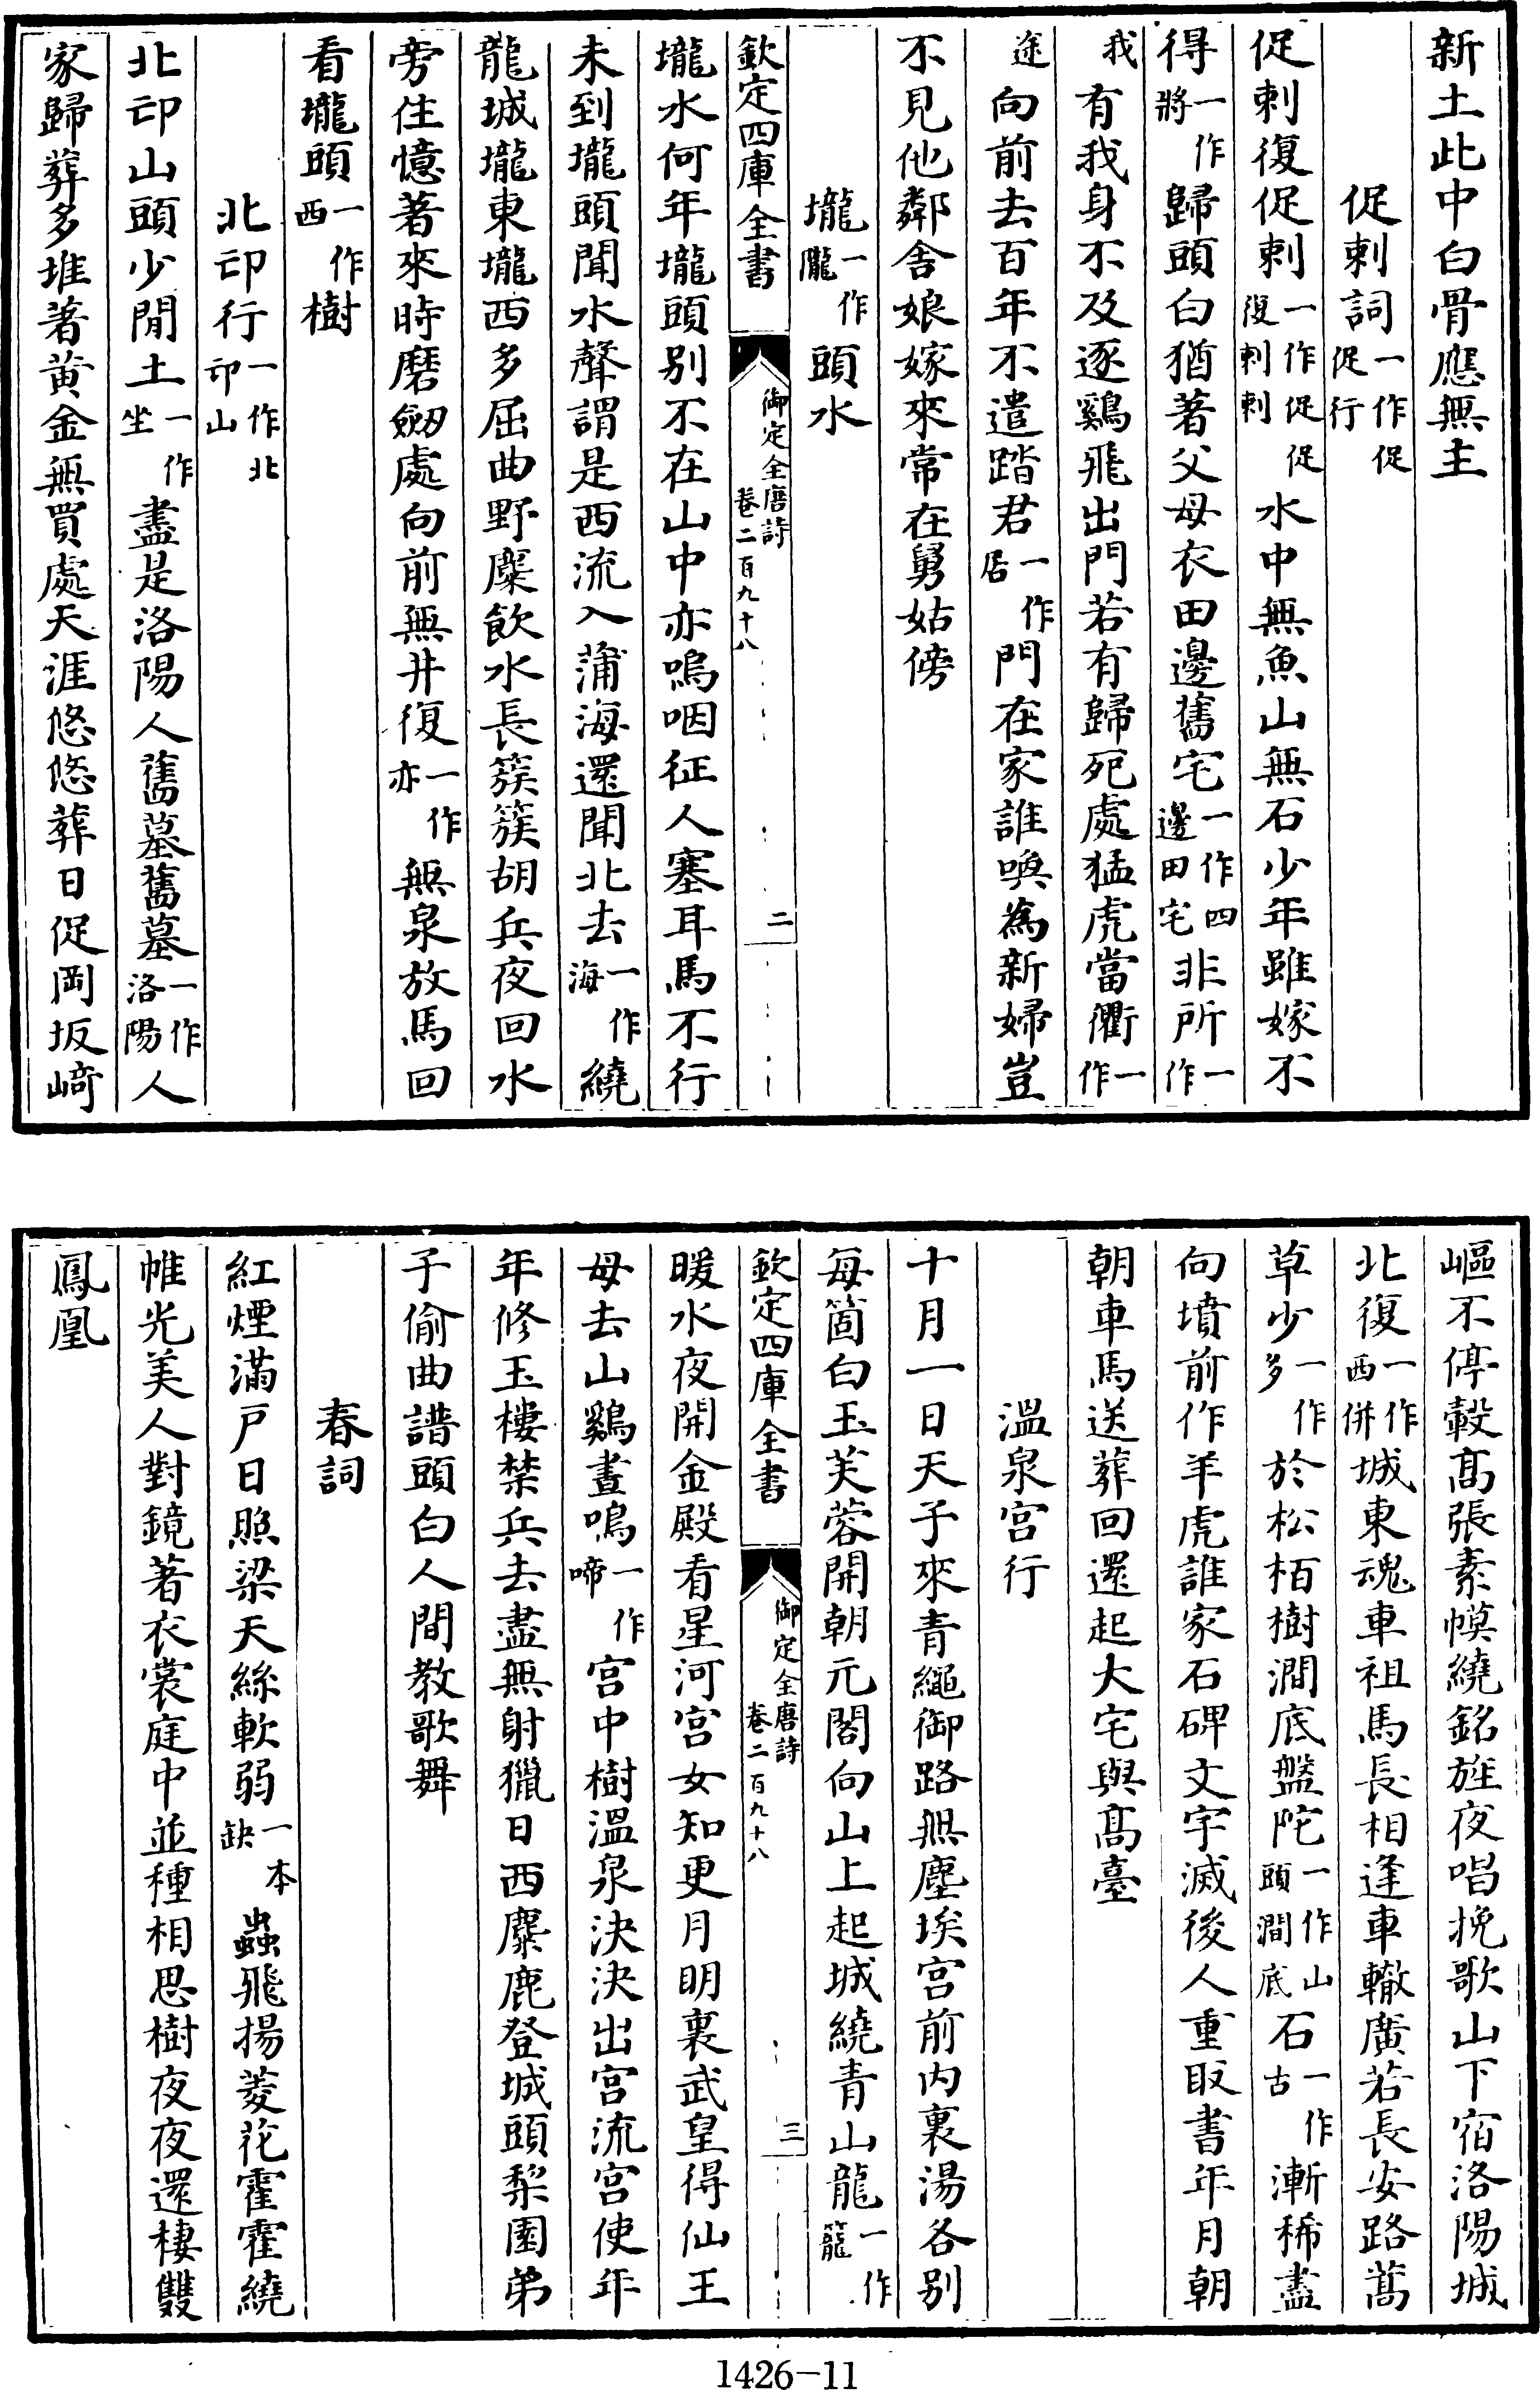 新土此中白骨應無主
促剌詞一作促促行
促剌復促剌一作促促復剌剌水中無魚山無石少年雖嫁不
得一作將歸頭白猶著父母衣田邊舊宅一作四邊田宅非所一作
我有我身不及逐鷄飛出門若有歸死處猛虎當衢一作
途向前去百年不遣踏君一作居門在家誰喚為新婦豈
不見他鄰舍娘嫁來常在舅姑傍
壠一作隴頭水
欽定四庫全書
御定全唐詩
卷二百九十八
二
壠水何年壠頭别不在山中亦嗚咽征人塞耳馬不行
未到壠頭聞水聲謂是西流入蒲海還聞北去一作海繞
龍城壠東壠西多屈曲野麋飲水長簇簇胡兵夜回水
旁住憶著來時磨劒處向前無井復一作亦無泉放馬回
看壠頭一作西樹
北邙行一作北邙山
北邙山頭少閒土一作坐盡是洛陽人舊墓舊墓一作洛陽人
家歸葬多堆著黄金無買處天涯悠悠葬日促岡坂崎
嶇不停轂髙張素幙繞銘旌夜唱挽歌山下宿洛陽城
北復一作西併城東魂車祖馬長相逢車轍廣若長安路蒿
草少一作多於松栢樹澗底盤陀一作山頭澗底石一作古漸稀盡
向墳前作羊虎誰家石碑文字滅後人重取書年月朝
朝車馬送葬回還起大宅與髙臺
溫泉宫行
十月一日天子來青繩御路無塵埃宫前内裏湯各别
每箇白玉芙蓉開朝元閣向山上起城繞青山龍一作籠
欽定四庫全書
御定全唐詩
卷二百九十八
三
暖水夜開金殿看星河宫女知更月明裏武皇得仙王
母去山鷄晝鳴一作啼宫中樹溫泉決決出宫流宫使年
年修玉樓禁兵去盡無射獵日西麋鹿登城頭梨園弟
子偷曲譜頭白人間教歌舞
春詞
紅煙滿戸日照梁天絲軟弱一本缺蟲飛揚菱花霍霍繞
帷光美人對鏡著衣裳庭中並種相思樹夜夜還棲雙
鳳凰
1426-11